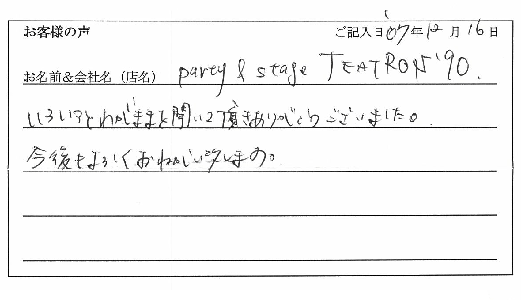 お客様の声
ご記入日 '07年12月16日
お名前&会社名（店名） party & stage TEATRON '90.
いろいろとわがままを聞いて頂きありがとうございました。
今後もよろしくおねがい致します。